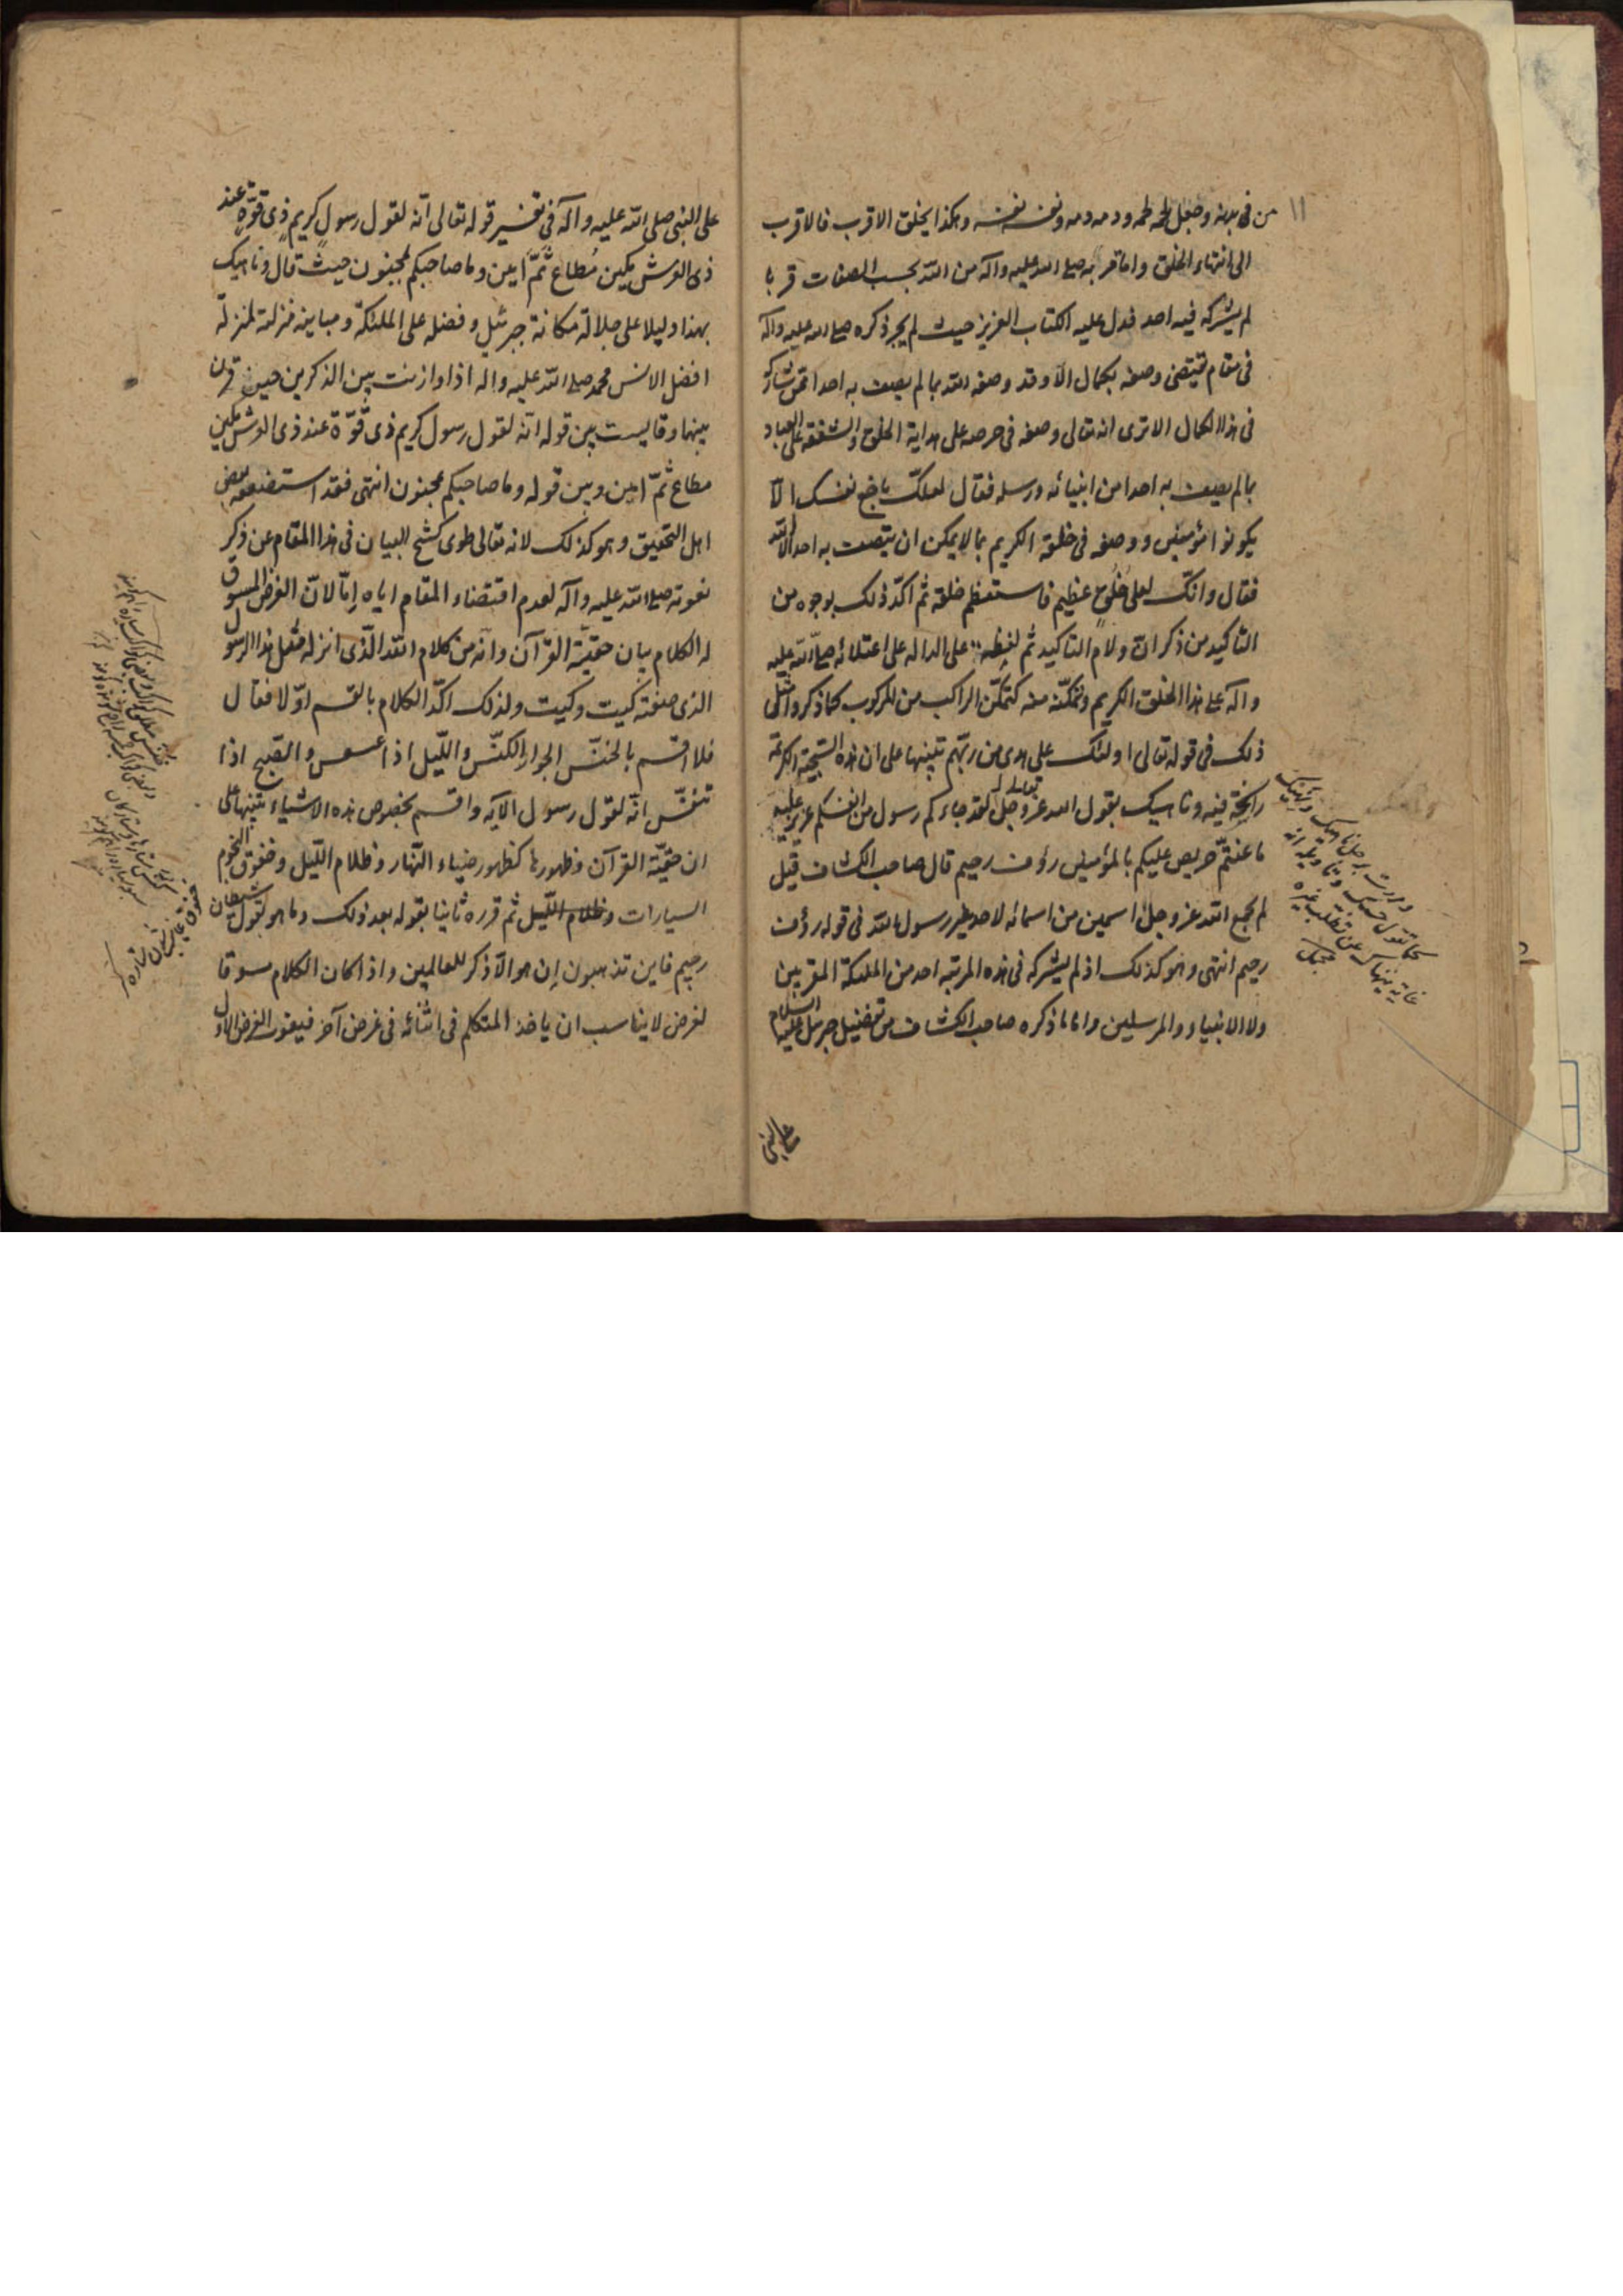 ١١
من فى بدنه وجعل لحمه لحمه ودمه دمه ونفسه نفسه وهكذا يخلق الاقرب فالاقرب
الى انتهاء الخلق واما قربه صلى الله عليه وآله من الله بحسب الصفات قربا
لم يشركه فيه احد فدل عليه الكتاب العزيز حيث لم يجر ذكره صلى الله عليه وآله
فى مقام يقتضى وصفه بكمال الا وقد وصفه الله بما لم يصف به احدا ممن شاركه
فى هذا الكمال الا ترى انه تعالى وصفه فى حرصه على هداية الخلق والشفقة على العباد
بما لم يصف به احدا من انبيائه ورسله فقال لعلك باخع نفسك الا
يكونوا مؤمنين ووصفه فى خلقه الكريم بما لا يمكن ان يتصف به احد الا الله
فقال وانك لعلى خلق عظيم فاستعظم خلقه ثم اكد ذلك بوجوه من
التاكيد من ذكر ان ولام التاكيد ثم لفظة على الدالة على اعتلائه صلى الله عليه
وآله على هذا الخلق الكريم وتمكنه منه كتمكن الراكب من المركوب كما ذكروا مثل
ذلك فى قوله تعالى اولئك على هدى من ربهم تنبيها على ان هذه السجية الكريمة
راسخة فيه وناهيك بقول الله عز وجل لقد جاءكم رسول من انفسكم عزيز عليه
ما عنتم حريص عليكم بالمؤمنين رؤف رحيم قال صاحب الكشاف قيل
لم يجمع الله عز وجل اسمين من اسمائه لاحد غير رسول الله فى قوله رؤف
رحيم انتهى وهو كذلك اذ لم يشركه فى هذه المرتبة احد من الملئكة المقربين
ولا الانبياء والمرسلين واما ما ذكره صاحب الكشاف من تفضيل جبرئيل عليه السلام
كما تقول حسبك وتاويله انه
غاية ينهاك عن تطلب غيره
على النبى صلى الله عليه وآله فى تفسير قوله تعالى انه لقول رسول كريم ذى قوة عند
ذى العرش مكين مطاع ثم امين وما صاحبكم بمجنون حيث قال وناهيك
بهذا دليلا على جلالة مكانة جبرئيل وفضله على الملئكة ومباينة منزلته لمنزلة
افضل الانس محمد صلى الله عليه واله اذا وازنت بين الذكرين حين قرن
بينهما وقايست بين قوله انه لقول رسول كريم ذى قوة عند ذى العرش مكين
مطاع ثم امين وبين قوله وما صاحبكم بمجنون انتهى فقد استضعفه بعض
اهل التحقيق وهو كذلك لانه تعالى طوى كشح البيان فى هذا المقام عن ذكر
نعوته صلى الله عليه وآله لعدم اقتضاء المقام اياه اما لان الغرض المسوق
له الكلام بيان حقية القرآن وانه من كلام الله الذى انزله مثل هذا الرسول
الذى صفته كيت وكيت ولذلك اكد الكلام بالقسم اولا فقال
فلا اقسم بالخنس الجوار الكنس والليل اذا عسعس والصبح اذا
تنفس انه لقول رسول الآية واقسم بخصوص هذه الاشياء تنبيها على
ان حقية القرآن وظهورها كظهور ضياء النهار وظلام الليل وخفوق النجوم
السيارات وظلام الليل ثم قرره ثانيا بقوله بعد ذلك وما هو بقول شيطان
رجيم فاين تذهبون ان هو الا ذكر للعالمين واذا كان الكلام مسوقا
لغرض لا يناسب ان ياخذ المتكلم فى اثنائه فى غرض آخر فيفوت الغرض الاول